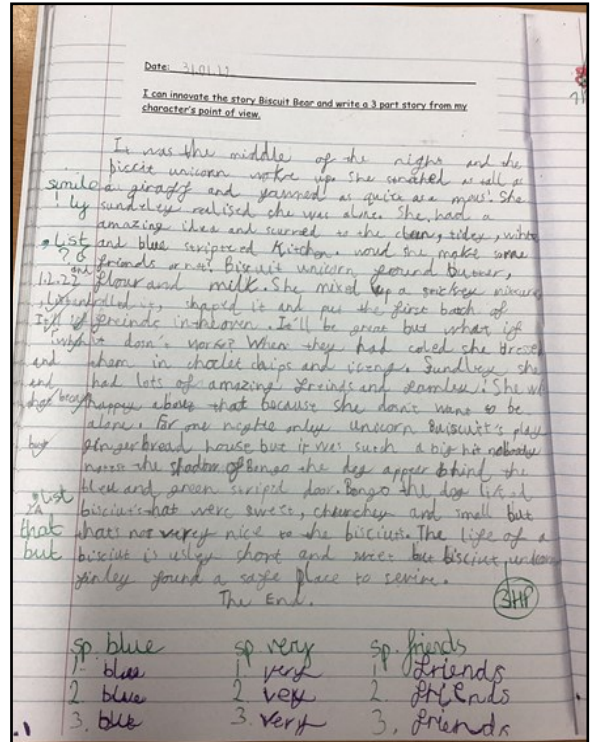 Date: 31.01.22
I can innovate the story Biscuit Bear and write a 3 part story from my
character's point of view.
It was the middle of the night and the
biccit unicorn woke up. She streched as tall as
simile a giraff and yawned as quite as a mous. She
! ly sundley realised she was alone. She had a
amazing idea and scurred to the clean, tidey, white
, list and blue stripted Kitchen. woud she make some
? G friends or not? Biscuit unicorn found butter,
1.2.22 flour and milk. She mixed up a mixture
rolled it, shaped it and put the first batch of
freinds in the oven. It'll be great but what if
it dosn't work? When they had coled she
and them in choclet chips and iceng. Sundley she
and had lots of amazing freinds and She
happy about that because she don't want to be
alone. For one only unicorn play
but gingerbread house but it was such a big hit nobody
the shadow of Bongo the dog apper bhind the
bleu and green striped door. Bongo the dog liked
, list bisciuts that were swest, and small but
that thats not verey nice to the bisciuts. The life of a
but bisciut is usley short and sweet but bisciut unicorn
finley found a safe place to
The End.
3HP
sp. blue sp. very sp. friends
1. blue 1 very 1 friends
2. blue 2. very 2. friends
3. blue 3. very 3. friends